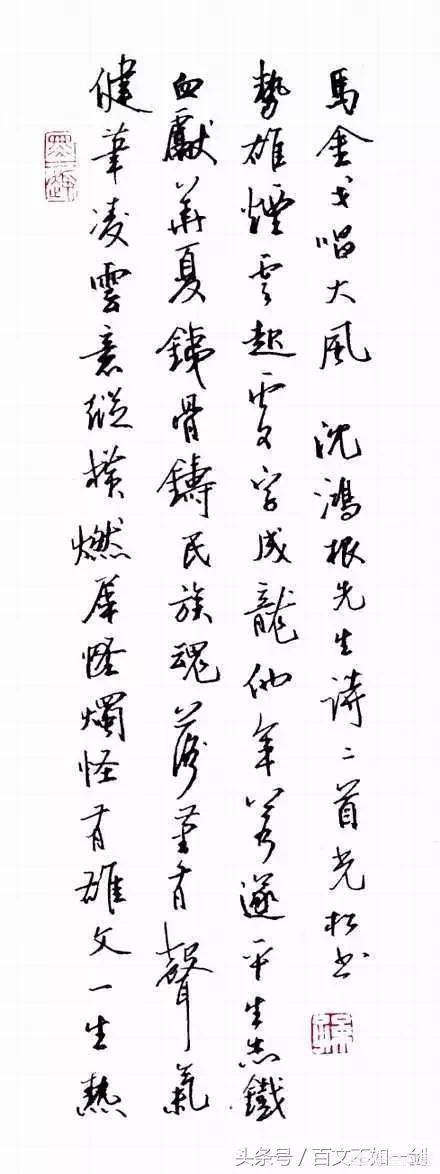 健筆凌雲意縱橫燃犀怪燭怪有雄文一生熱
血獻華夏銕骨鑄民族魂落筆有聲氣
勢雄煙雲起處字成龍他年若遂平生志鐵
馬金戈唱大風 沈鴻根先生詩二首光松书
头条号／百文不如一剑